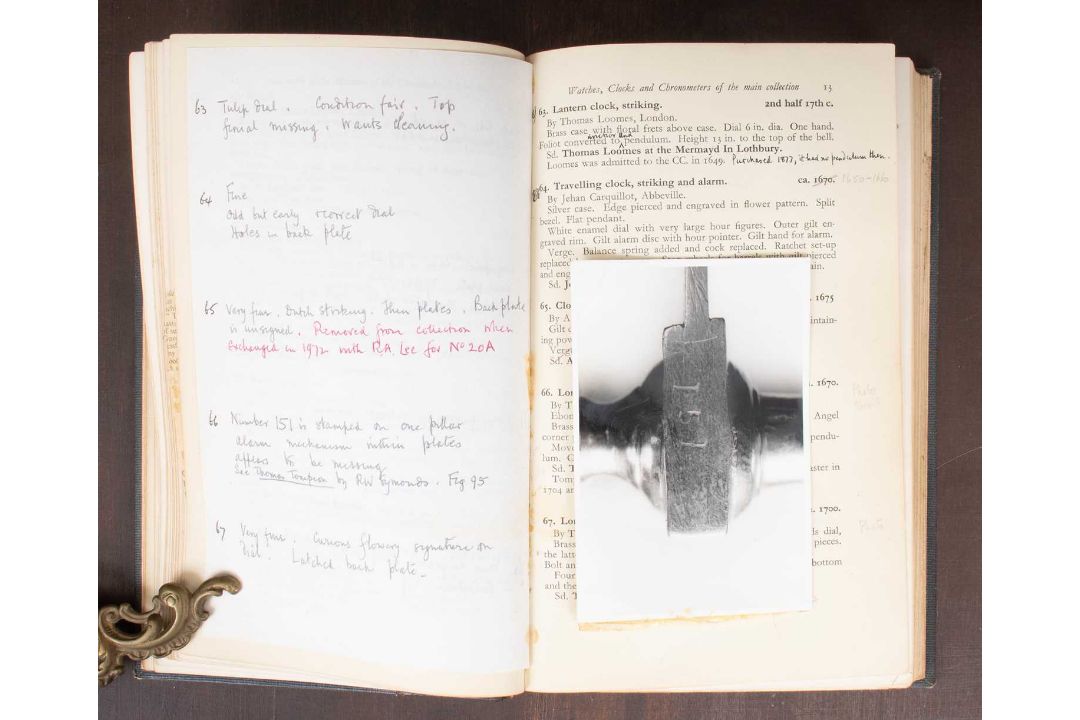 63 Tulip dial. Condition fair. Top
finial missing. Wants cleaning.
64 Fine
Odd but early + correct dial
Holes in back plate
65 Very fine. Dutch striking. Thin plates. Back plate
is unsigned. Removed from collection when
exchanged in 1972 with R.A. Lee for No 20A
66 Number 151 is stamped on one pillar
alarm mechanism within plates
appears to be missing
See Thomas Tompion by RW Symonds. Fig 95
67 Very fine. Curious flowery signature on
dial. Latched back plate.
Watches, Clocks and Chronometers of the main collection 13
63. Lantern clock, striking. 2nd half 17th c.
By Thomas Loomes, London.
Brass case with floral frets above case. Dial 6 in. dia. One hand.
anchor and
Foliot converted to pendulum. Height 13 in. to the top of the bell.
Sd. Thomas Loomes at the Mermayd In Lothbury.
Loomes was admitted to the CC. in 1649. Purchased 1877, it had no pendulum then.
64. Travelling clock, striking and alarm. ca. 1670. 1650-1660
By Jehan Carquillot, Abbeville.
Silver case. Edge pierced and engraved in flower pattern. Split
bezel. Flat pendant.
White enamel dial with very large hour figures. Outer gilt en-
graved rim. Gilt alarm disc with hour pointer. Gilt hand for alarm.
Verge. Balance spring added and cock replaced. Ratchet set-up
replaced with gilt pierced
and eng
Sd. J
65. Clo 1675
By A
Gilt c intain-
ing pov
Verg
Sd. A
66. Lon . 1670.
By T
Ebon Angel
Brass
corner pendu-
Move
lum. C
Sd. T aster in
Tom
1704 an
67. Lon . 1700.
By T ls dial,
Brass pieces.
the latt
Bolt an bottom
Four
and the
Sd. T
151
Photo
Photo